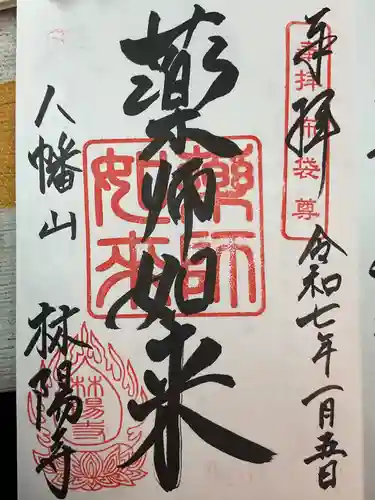 奉拝
奉拝 布袋尊
令和七年一月五日
薬師如来
薬師如来
八幡山 林陽寺
林陽寺